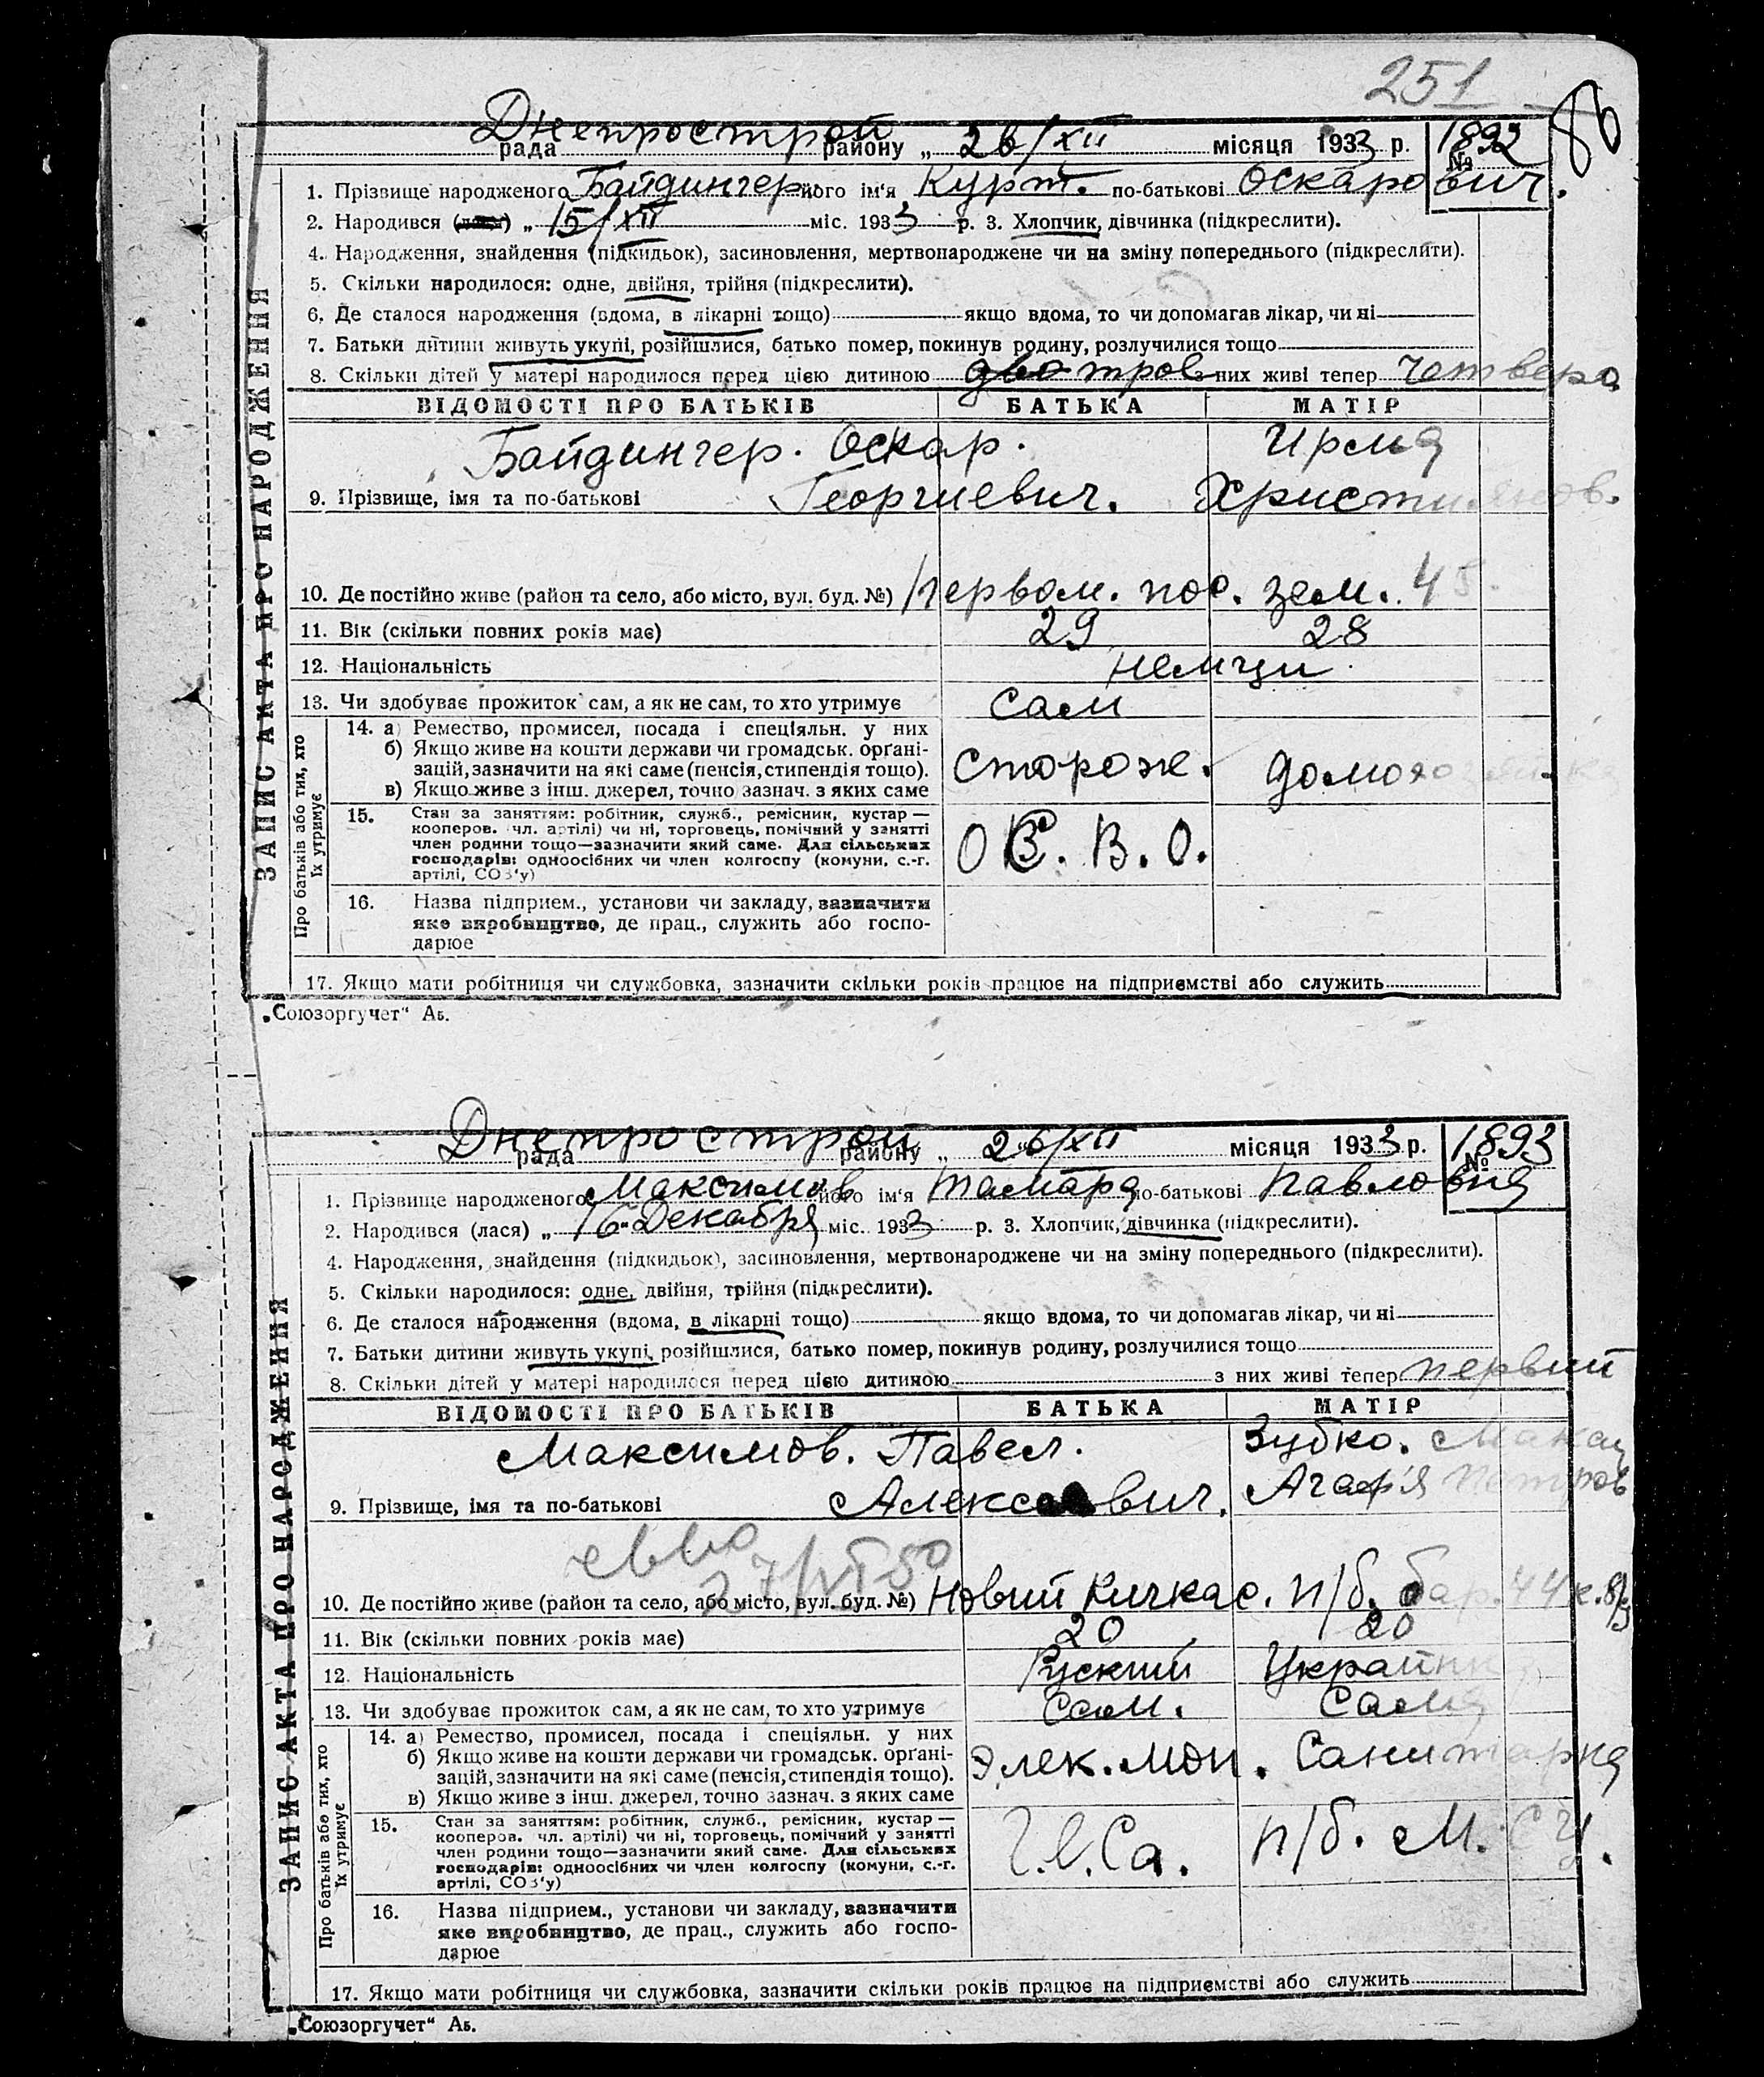 251
86
Днепрострой
рада района „ 26/XII місяця 1933 р. № 1892
1. Прізвище народженого Байдингер його ім'я Курт. по-батькові Оскарович.
2. Народився (лася) „ 15/XII міс. 1933 р. 3. Хлопчик, дівчинка (підкреслити).
4. Народження, знайдення (підкидьок), засиновлення, мертвонароджене чи на зміну попереднього (підкреслити).
5. Скільки народилося: одне, двійня, трійня (підкреслити).
6. Де сталося народження (вдома, в лікарні тощо) якщо вдома, то чи допомагав лікар, чи ні
7. Батьки дитини живуть укупі, розійшлися, батько помер, покинув родину, розлучилися тощо
8. Скільки дітей у матері народилося перед цією дитиною трое з них живі тепер четверо
ВІДОМОСТІ ПРО БАТЬКІВ БАТЬКА МАТІР
Байдингер. Оскар. Ирма
9. Прізвище, імя та по-батькові Георгиевич. Христианов.
10. Де постійно живе (район та село, або місто, вул. буд. №) Первом. пос. зем. 45.
11. Вік (скільки повних років має) 29 28
12. Національність немцы.
13. Чи здобуває прожиток сам, а як не сам, то хто утримує сам
Про батьків або тих, хто їх утримує
14. а) Ремество, промисел, посада і спеціяльн. у них
б) Якщо живе на кошти держави чи громадськ. орґані-
зацій, зазначити на які саме (пенсія, стипендія тощо). сторож. домохозяйка
в) Якщо живе з інш. джерел, точно зазнач. з яких саме
15. Стан за заняттям: робітник, служб., ремісник, кустар —
кооперов. чл. артілі) чи ні, торговець, помічний у занятті
член родини тощо—зазначити який саме. Для сільських
господарів: одноосібних чи член колгоспу (комуни, с.-г.
артілі, СОЗ'у)
В. О.
16. Назва підприєм., установи чи закладу, зазначити
яке виробництво, де прац., служить або госпо-
дарює
17. Якщо мати робітниця чи службовка, зазначити скільки років працює на підприємстві або служить
ЗАПИС АКТА ПРО НАРОДЖЕННЯ
„Союзоргучет“ Аб.
Днепрострой
рада району „ 26/XII місяця 1933 р. № 1893
1. Прізвище народженого Максимов його ім'я Тамара по-батькові Павловна
2. Народився (лася) „ 16 Декабря міс. 1933 р. 3. Хлопчик, дівчинка (підкреслити).
4. Народження, знайдення (підкидьок), засиновлення, мертвонароджене чи на зміну попереднього (підкреслити).
5. Скільки народилося: одне, двійня, трійня (підкреслити).
6. Де сталося народження (вдома, в лікарні тощо) якщо вдома, то чи допомагав лікар, чи ні
7. Батьки дитини живуть укупі, розійшлися, батько помер, покинув родину, розлучилися тощо
8. Скільки дітей у матері народилося перед цією дитиною з них живі тепер первый
ВІДОМОСТІ ПРО БАТЬКІВ БАТЬКА МАТІР
Максимов. Павел. Зубко.
9. Прізвище, імя та по-батькові Агаф'я Петров
10. Де постійно живе (район та село, або місто, вул. буд. №) Новый Кичкас. п/б. бар. 44 к.
11. Вік (скільки повних років має) 20 20
12. Національність Руский Украинка
13. Чи здобуває прожиток сам, а як не сам, то хто утримує Сам. Сама
Про батьків або тих, хто їх утримує
14. а) Ремество, промисел, посада і спеціяльн. у них
б) Якщо живе на кошти держави чи громадськ. орґані-
зацій, зазначити на які саме (пенсія, стипендія тощо). элек. мон. Санитарка
в) Якщо живе з інш. джерел, точно зазнач. з яких саме
15. Стан за заняттям: робітник, служб., ремісник, кустар —
кооперов. чл. артілі) чи ні, торговець, помічний у занятті
член родини тощо—зазначити який саме. Для сільських
господарів: одноосібних чи член колгоспу (комуни, с.-г.
артілі, СОЗ'у)
п/б. М. С Ч.
16. Назва підприєм., установи чи закладу, зазначити
яке виробництво, де прац., служить або госпо-
дарює
17. Якщо мати робітниця чи службовка, зазначити скільки років працює на підприємстві або служить
ЗАПИС АКТА ПРО НАРОДЖЕННЯ
„Союзоргучет“ Аб.